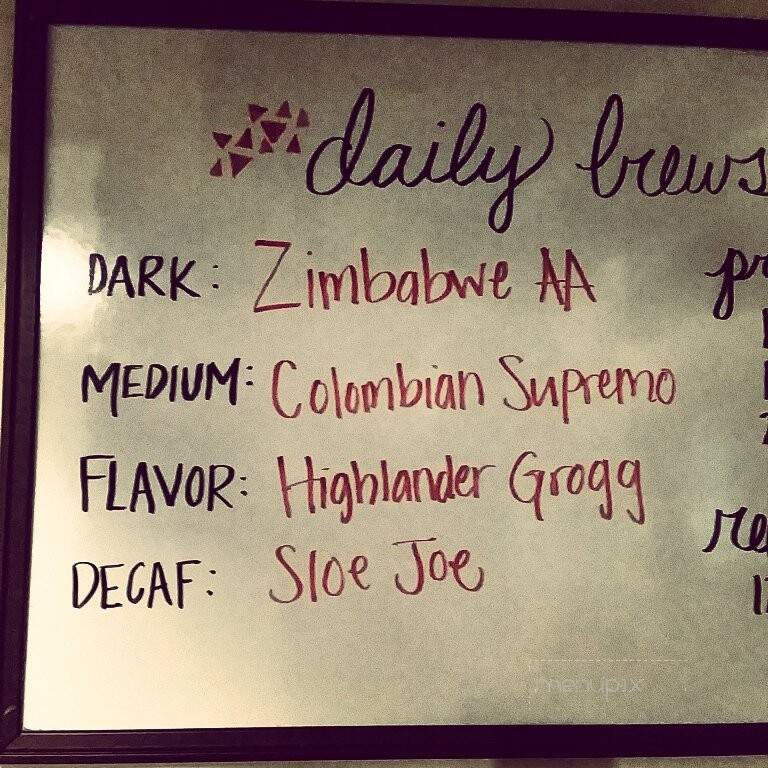 daily brews
DARK: Zimbabwe AA
MEDIUM: Colombian Supremo
FLAVOR: Highlander Grogg
DECAF: Sloe Joe
menupix